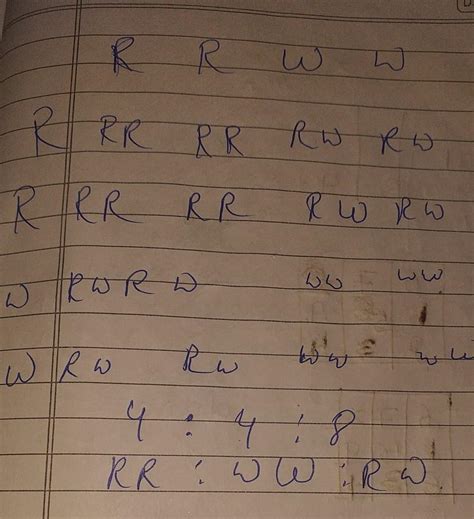 R R W W
R RR RR RW RW
R RR RR RW RW
W RW RW WW WW
W RW RW WW WW
4 : 4 : 8
RR : WW : RW